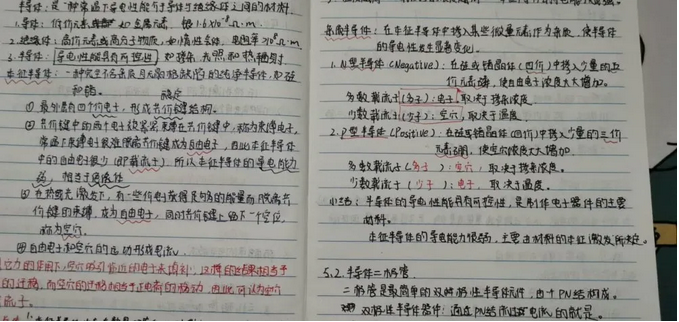 半导体:是一种常温下导电性能介于导体与绝缘体之间的材料.
1.导体:低价元素 如金属
2.绝缘体:高价元素或高分子物质,如惰性气体,电阻率
3.半导体:导电性能具有可控性
本征半导体:一种完全纯净
① 最外层有四个价电子,形成共价键结构。
② 共价键中的两个电子被紧紧束缚在共价键中,称为束缚电子,
常温下束缚电子很难脱离共价键成为自由电子,因此本征半导体
中的自由电子很少(即载流子),所以本征半导体的导电能力
弱,相当于绝缘体
③ 在热或光激发下,有一些价电子获得足够的能量而脱离共
价键的束缚,成为自由电子,同时共价键上留下一个空位,
称为空穴。
④自由电子和空穴的运动形成电流
力的作用下,空穴吸引临近的电子来填补,这样的结果相当于
的迁移,而空穴的迁移相当于正电荷的移动,因此,可认为空穴
杂质半导体:在本征半导体中掺入某些微量元素作为杂质,使半导体
的导电性发生显著变化。
1.N型半导体(Negative):在硅或锗晶体(四价)中掺入少量的五
价元素磷,使自由电子浓度大大增加。
多数载流子(多子):电子,取决于掺杂浓度.
少数载流子(少子):空穴,取决于温度
2.P型半导体(Positive):在硅或锗晶体(四价)中掺入少量的三价
元素硼,使空穴浓度大大增加
多数载流子(多子):空穴,取决于掺杂浓度。
少数载流子(少子):电子,取决于温度。
小结:半导体的导电性能具有可控性,是制作电子器件的主要
材料。
本征半导体的导电能力很弱,主要由材料的本征激发所决定。
5.2.半导体二极管
二极管是最简单的双极性半导体元件,由个PN结构成。
双极性半导体器件:通过PN结所